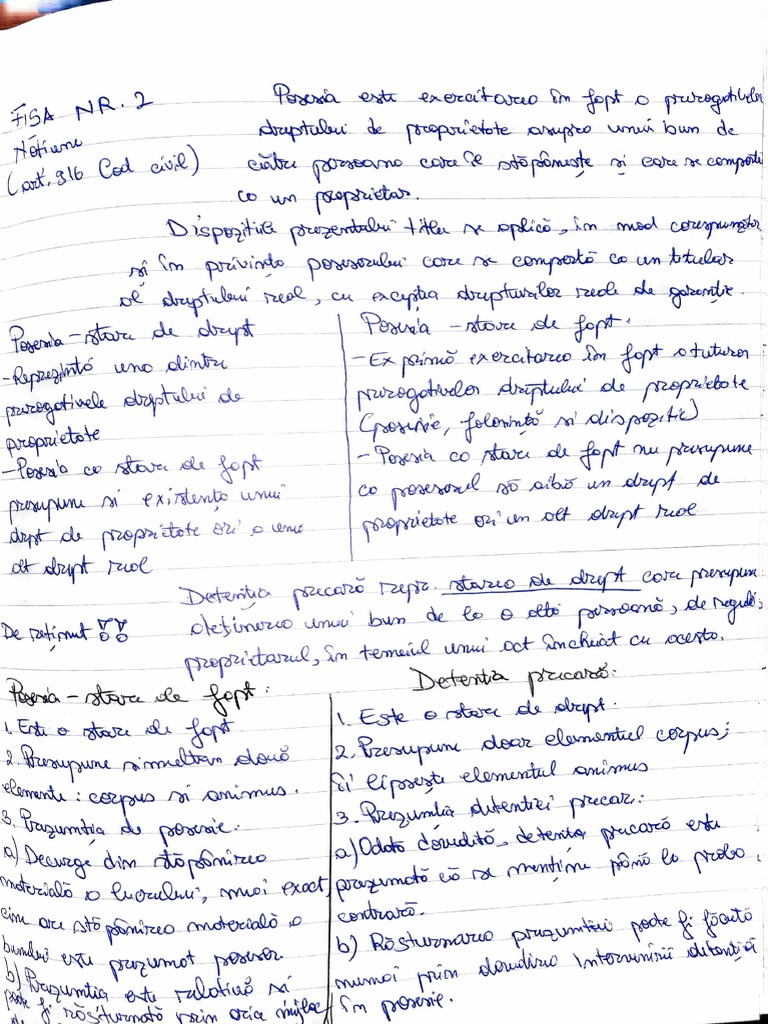 FISA NR. 2
Notiune
(art. 916 Cod civil)
Posesia este exercitarea în fapt a prerogativelor
dreptului de proprietate asupra unui bun de
către persoana care îl stăpânește și care se comportă
ca un proprietar.
Dispozițiile prezentului titlu se aplică, în mod corespunzător
și în privința posesorului care se comportă ca un titular
al dreptului real, cu excepția drepturilor reale de garanție.
Posesia - stare de drept
- Reprezintă una dintre
prerogativele dreptului de
proprietate
- Posesia ca stare de fapt
presupune si existența unui
drept de proprietate ori a unui
alt drept real
Posesia - stare de fapt.
- Exprimă exercitarea în fapt a tuturor
prerogativelor dreptului de proprietate
(posesie, folosință si dispoziție)
- Posesia ca stare de fapt nu presupune
ca posesorul să aibă un drept de
proprietate ori un alt drept real
De reținut
Detenția precară repr. starea de drept care presupune
deținerea unui bun de la o altă persoană, de regulă,
proprietarul, în temeiul unui act încheiat cu acesta.
Posesia - stare de fapt:
1. Este o stare de fapt
2. Presupune simultan două
elemente: corpus si animus.
3. Prezumția de posesie:
a) Decurge din stăpânirea
materială a lucrului, mai exact,
cine are stăpânirea materială a
bunului este prezumat posesor
b) Prezumtia este relativă si
poate fi răsturnată prin orice mijloc
de
Detentia precară:
1. Este o stare de drept.
2. Presupune doar elementul corpus;
îi lipsește elementul animus
3. Prezumtia detentiei precar:
a) Odată dovedită, detenția precară este
prezumată că se menține până la proba
contrară.
b) Răsturnarea prezumtiei poate fi făcută
numai prin dovedirea intervertirii detenției
în posesie.